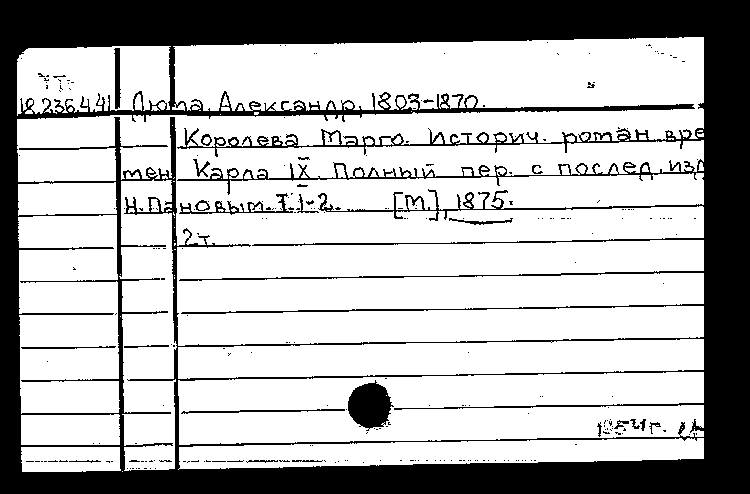 18.236.4.41 Дюма, Александр, 1803-1870.
Королева Марго. Историч. роман вре
мен Карла IX. Полный пер. с послед. изд
Н. Пановым. Т. 1-2. [М.], 1875.
2 т.